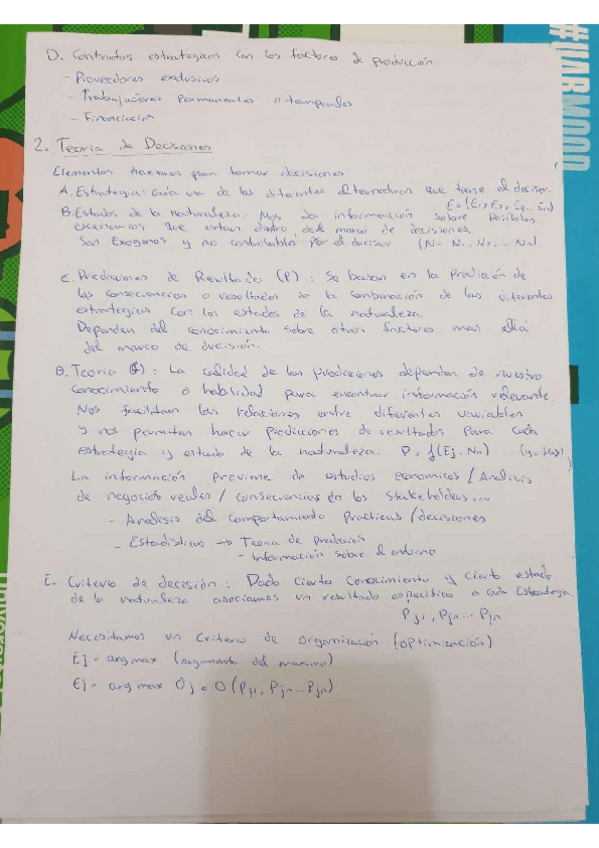 D. Contratos estrategicos con los factores de producción
- Proveedores exclusivos
- Trabajadores permanentes o temporales
- Financiación
2. Teoria de Decisiones
Elementos para tomar decisiones
A. Estrategia: Cada una de las diferentes alternativas que tiene el decisor.
B. Estados de la naturaleza: Nos da información sobre posibles
escenarios que estan dentro del marco de decisiones.
Son Exogenos y no controlables por el decisor
C. Predicciones de Resultados (P): Se basan en la predicción de
las consecuencias o resultados de la combinación de las diferentes
estrategias con los estados de la naturaleza.
Dependen del conocimiento sobre otros factores mas allá
del marco de decisión.
D. Teoria (f): La calidad de las predicciones dependen de nuestro
conocimiento o habilidad para encontrar información relevante.
Nos facilitan las relaciones entre diferentes variables
y nos permiten hacer predicciones de resultados para cada
estrategia y estado de la naturaleza. P = f(Ej, Nn)
La información proviene de estudios economicos / Analisis
de negocios reales / consecuencias en los stakeholders...
- Analisis del comportamiento practicas / decisiones
- Estadisticas → Teoria de Predicción
- Información sobre el entorno
E. Criterio de decisión: Dado cierto conocimiento y cierto estado
de la naturaleza asociamos un resultado especifico a cada Estrategia.
Pj1, Pjn... Pjn
Necesitamos un criterio de organización (optimización)
Ej = arg max (argumento del maximo)
Ej = arg max Oj = O (Pj1, Pjn... Pjn)
#UABMOOD